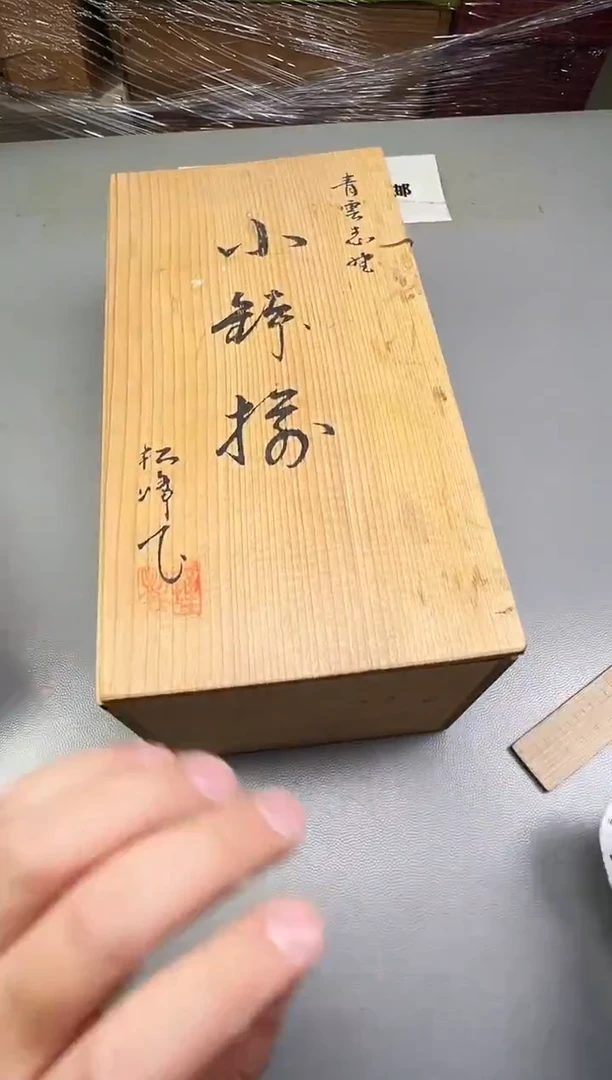 青雲志野
小鉢揃
松峰
邮